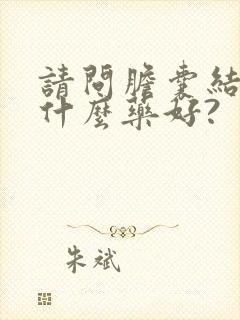 請問膽囊結
什麼藥好?
朱斌